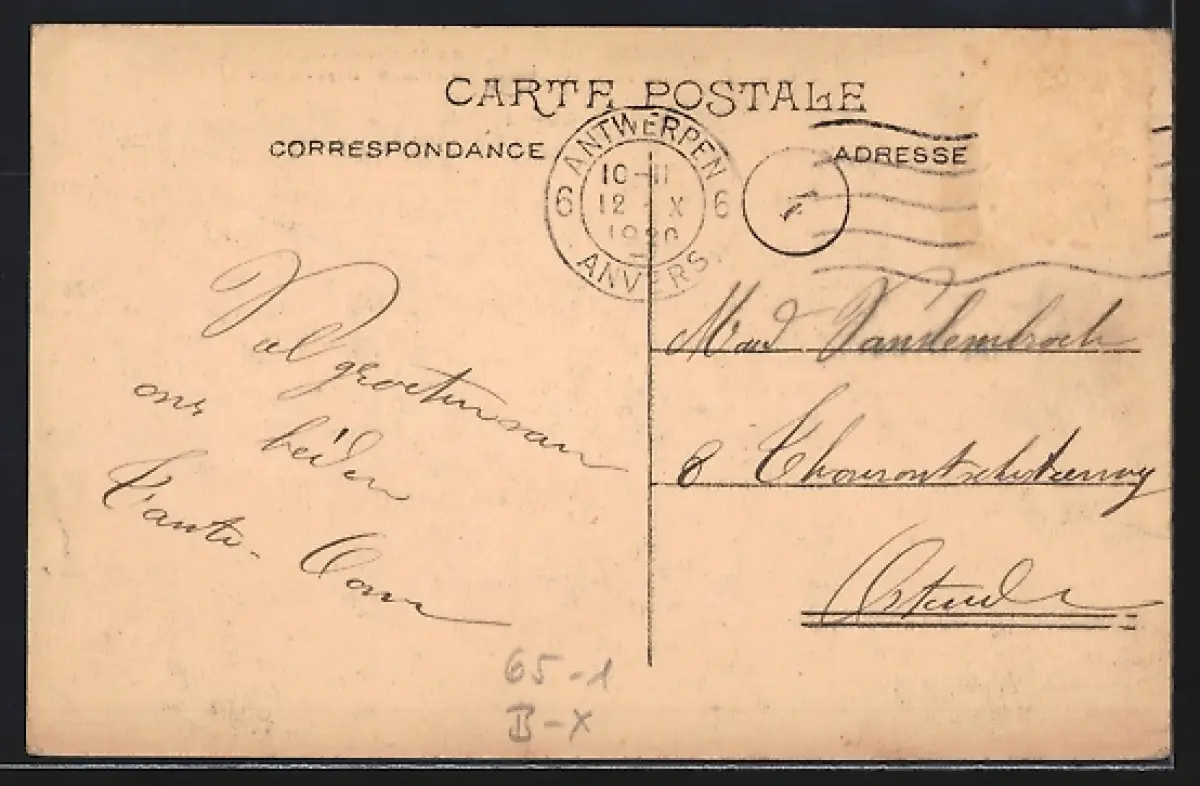 CARTE POSTALE
CORRESPONDANCE
ADRESSE
ANTWERPEN
6 10-11 6
12 X
1920
ANVERS
Veel groeten van
ons beiden
Tante - Oom
Mad Vandenbroeck
8
Ostende
65-1
B-X